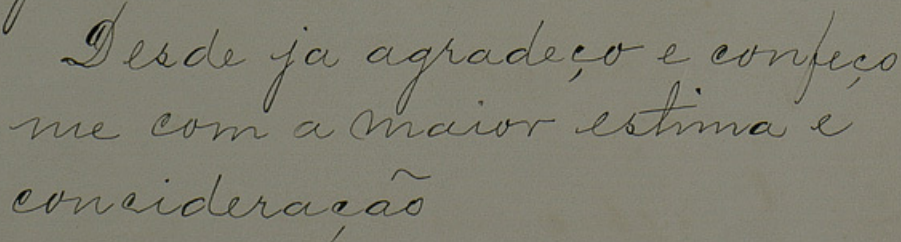 Desde ja agradeço e confeço
me com a maior estima e
concideração